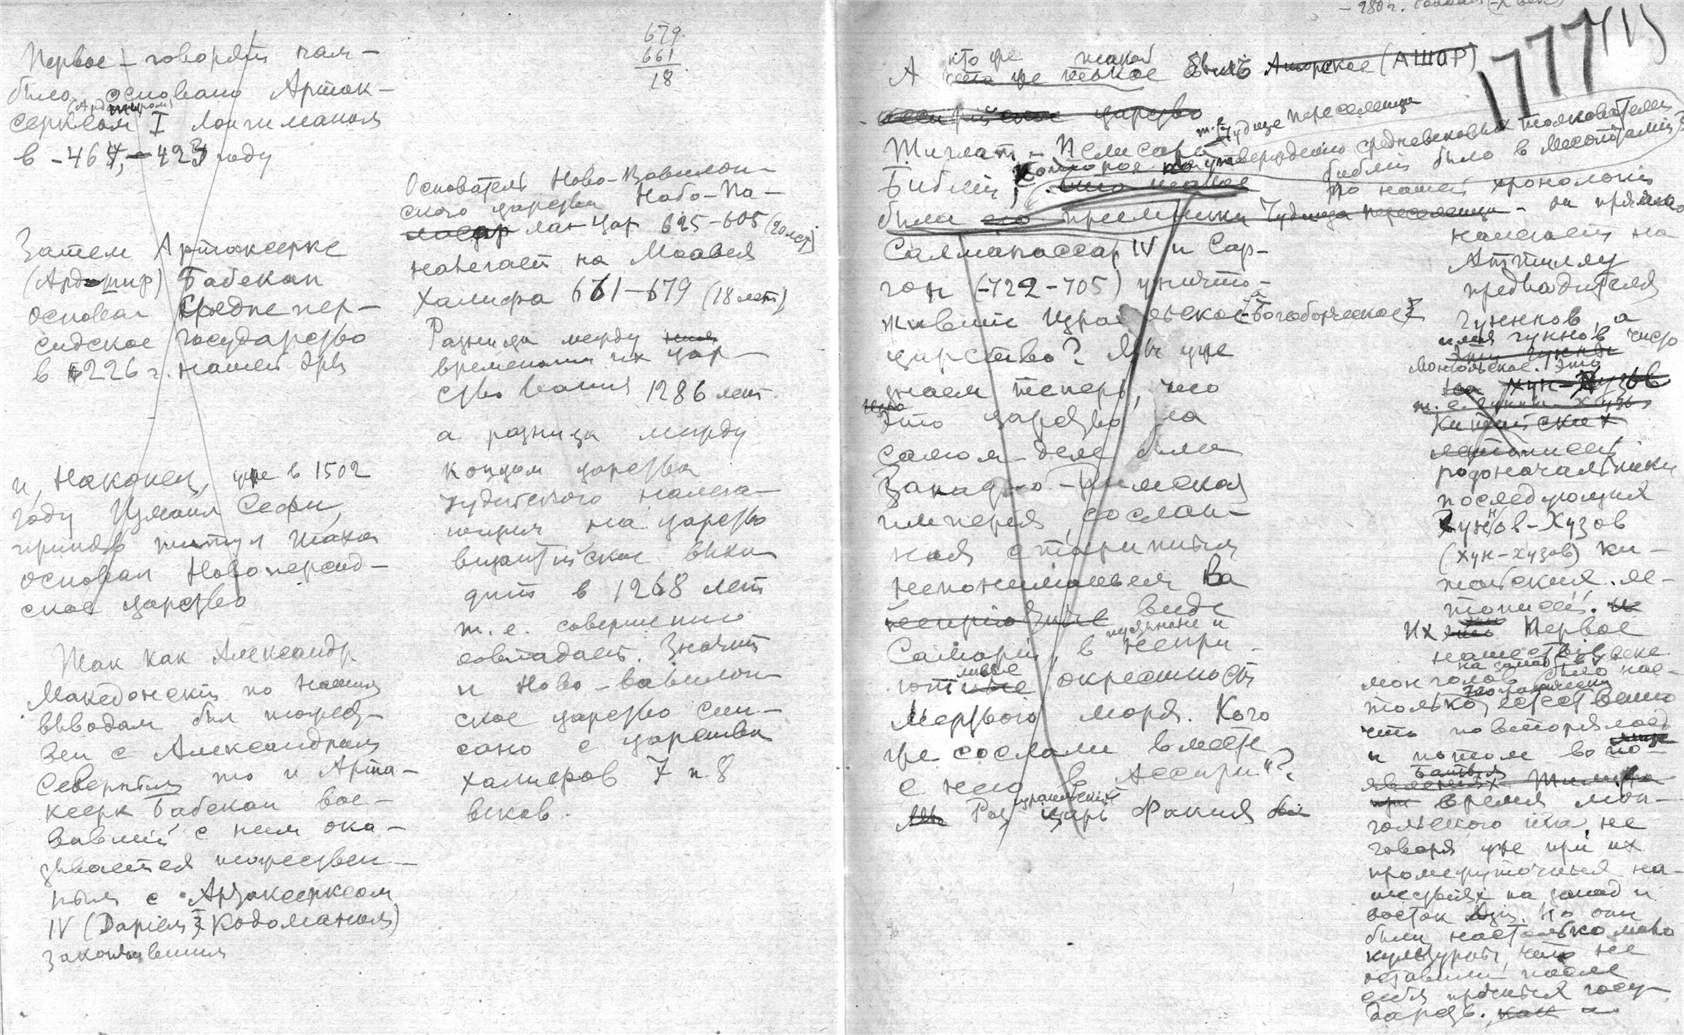 Первое – говорят нам –
было основано Артак-
серксом I Лонгиманом
(Ардеширом)
в -464, – 423 году
Затем Артаксеркс
(Ардешир) Бабекан
основал Среднепер-
сидское государство
в 226 г. нашей эры
и, наконец, уже в 1502
году Измаил Сефи,
приняв титул шаха
основал Новоперсид-
ское царство
Так как Александр
Македонский по нашим
выводам был тождест-
вен с Александром
Севером то и Арта-
ксеркс Бабекан вое-
вавший с ним ока-
зывается тождествен-
ным с Артаксерксом
IV (Дарием 3 Кодоманом)
закончившим
679
661
18
Основатель Ново-Вавилон-
ского царства Набо-По-
лассар лан-цар 625–605 (20 лет)
налегает на Моавия
Халифа 661–679 (18 лет)
Разница между
временами их цар-
ствования 1286 лет.
а разница между
концом царства
Иудейского налега-
ющим на царство
византийское выхо-
дит в 1268 лет
т.е. совершенно
совпадает. Значит
и Ново-Вавилон-
ское царство спи-
сано с царства
халифов 7 и 8
веков.
1777(1)
А кто же такой был Ашурское (АШАР)
ассирийское царство
Тиглат-Пелисар т.е. Чудище переселенца
Библии, которое по утверждению средневековых толкователей
библии было в Месопотамии?
По нашей хронологии
была его преемники Чудища переселенца – он прямо
Салманассар IV и Сар-
гон (-722-705) уничто-
живший Израильское-Богоборческое
царство? Мы уже
знаем теперь, что
это царство на
самом деле было
Западно-Римская
империя, сослан-
ная старинным
непониманием в
виде
Самарии в непри-
ютные окрестности
Мертвого моря. Кого
же сослали вместе
с нею в „Ассирию“?
Раз израильский царь Факия был
налегает на
Аттиллу
предводителя
Гуннов, а
имя гуннов чисто
монгольское. Это
т.е. гунны хузы
китайских
летописей
родоначальники
последующих
Хуннов-Хузов
(хун-хузов) ки-
тайских ле-
тописей.
Их первое
нашествие
монголов на запад было нас-
только географически естественно
что повторялось
и потом во
Батыя
время мон-
гольского ига, не
говоря уже при их
промежуточных на-
шествиях на запад и
восток Азии. Но они
были настолько мало
культурны, что не
оставили после
себя прочных госу-
дарств. как